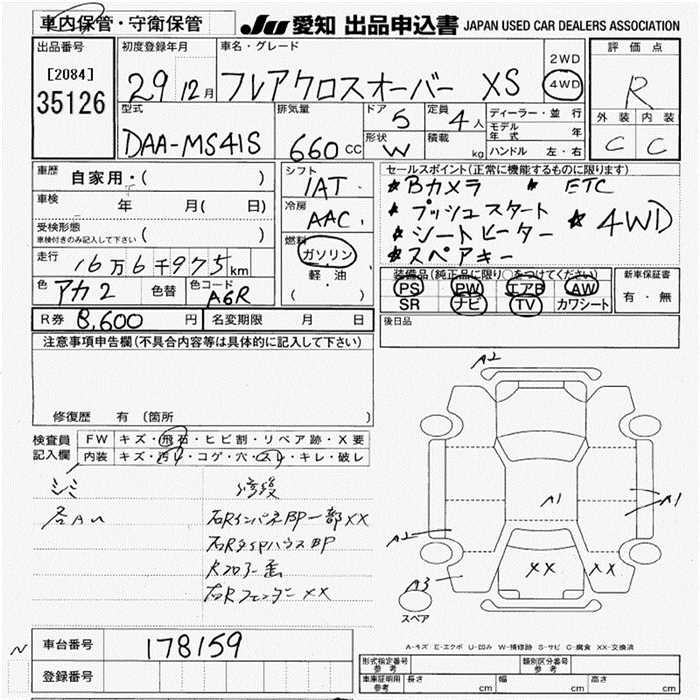 車内保管・守衛保管
JU 愛知 出品申込書 JAPAN USED CAR DEALERS ASSOCIATION
出品番号
[2084]
35126
初度登録年月
29 12月
車名・グレード
フレアクロスオーバー XS
2WD
4WD
評価点
R
外装 内装
C C
型式
DAA-MS41S
排気量
660 CC
ドア
5
定員
4人
形状
W
積載
kg
ディーラー・並行
モデル年式 年
ハンドル 左・右
車歴
自家用・( )
車検
年 月( 日)
受検形態
車検付きのみ記入して下さい ( )
走行
16万6千975km
色
アカ2
色替
色コード
A6R
シフト
IAT
冷房
AAC
燃料
ガソリン
軽・油
( )
セールスポイント(正常に機能するものに限ります)
★Bカメラ ★ ETC
★プッシュスタート ★4WD
★シートヒーター
★スペアキー
装備品(純正品に限り〇をつけてください)
PS PW エアB AW
SR ナビ TV カワシート
新車保証書
有・無
R券 8,600 円
名変期限 月 日
後日品
注意事項申告欄(不具合内容等は具体的に記入して下さい)
修復歴 有 (箇所 )
検査員
記入欄
FW キズ・飛石・ヒビ割・リペア跡・X要
内装 キズ・汚レ・コゲ・穴・スレ・キレ・破レ
修後
各AU
右RインパネBP一部XX
右RタイヤハウスBP
Rフロアー歪
右RフェンダーXX
A2
A1
A1
A2
XX XX
A3
スペア
A-キズ E-エクボ U-凹み W-補修跡 S-サビ C-腐食 XX-交換済
N
車台番号 178159
登録番号
形式指定番号
参考
類別区分番号
参考
車庫証明用
参考
長さ cm
幅 cm
高さ cm